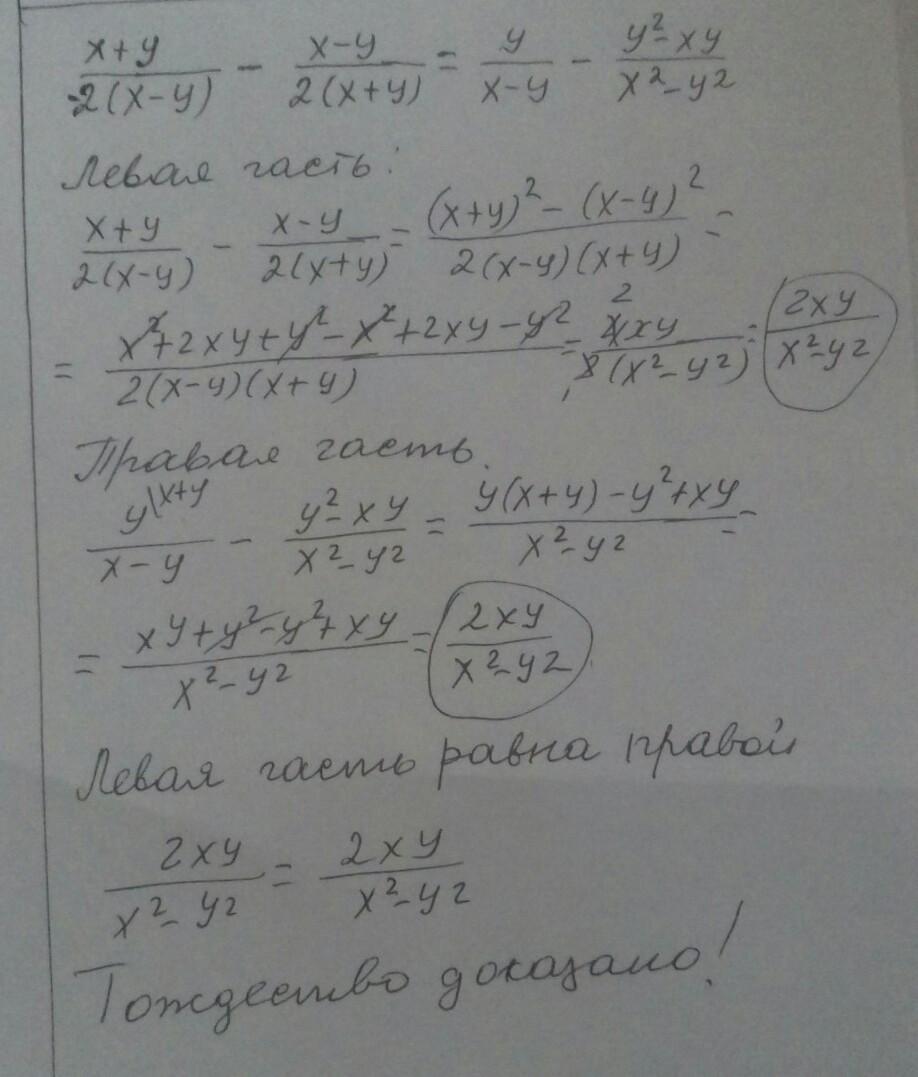 (x+y)/(2(x-y)) - (x-y)/(2(x+y)) = y/(x-y) - (y²-xy)/(x²-y²)
Левая часть:
(x+y)/(2(x-y)) - (x-y)/(2(x+y)) = ((x+y)² - (x-y)²)/(2(x-y)(x+y)) =
= (x²+2xy+y²-x²+2xy-y²)/(2(x-y)(x+y)) = 4xy/(2(x²-y²)) = 2xy/(x²-y²)
Правая часть.
y\x+y/(x-y) - (y²-xy)/(x²-y²) = (y(x+y)-y²+xy)/(x²-y²) =
= (xy+y²-y²+xy)/(x²-y²) = 2xy/(x²-y²)
Левая часть равна правой
2xy/(x²-y²) = 2xy/(x²-y²)
Тождество доказано!